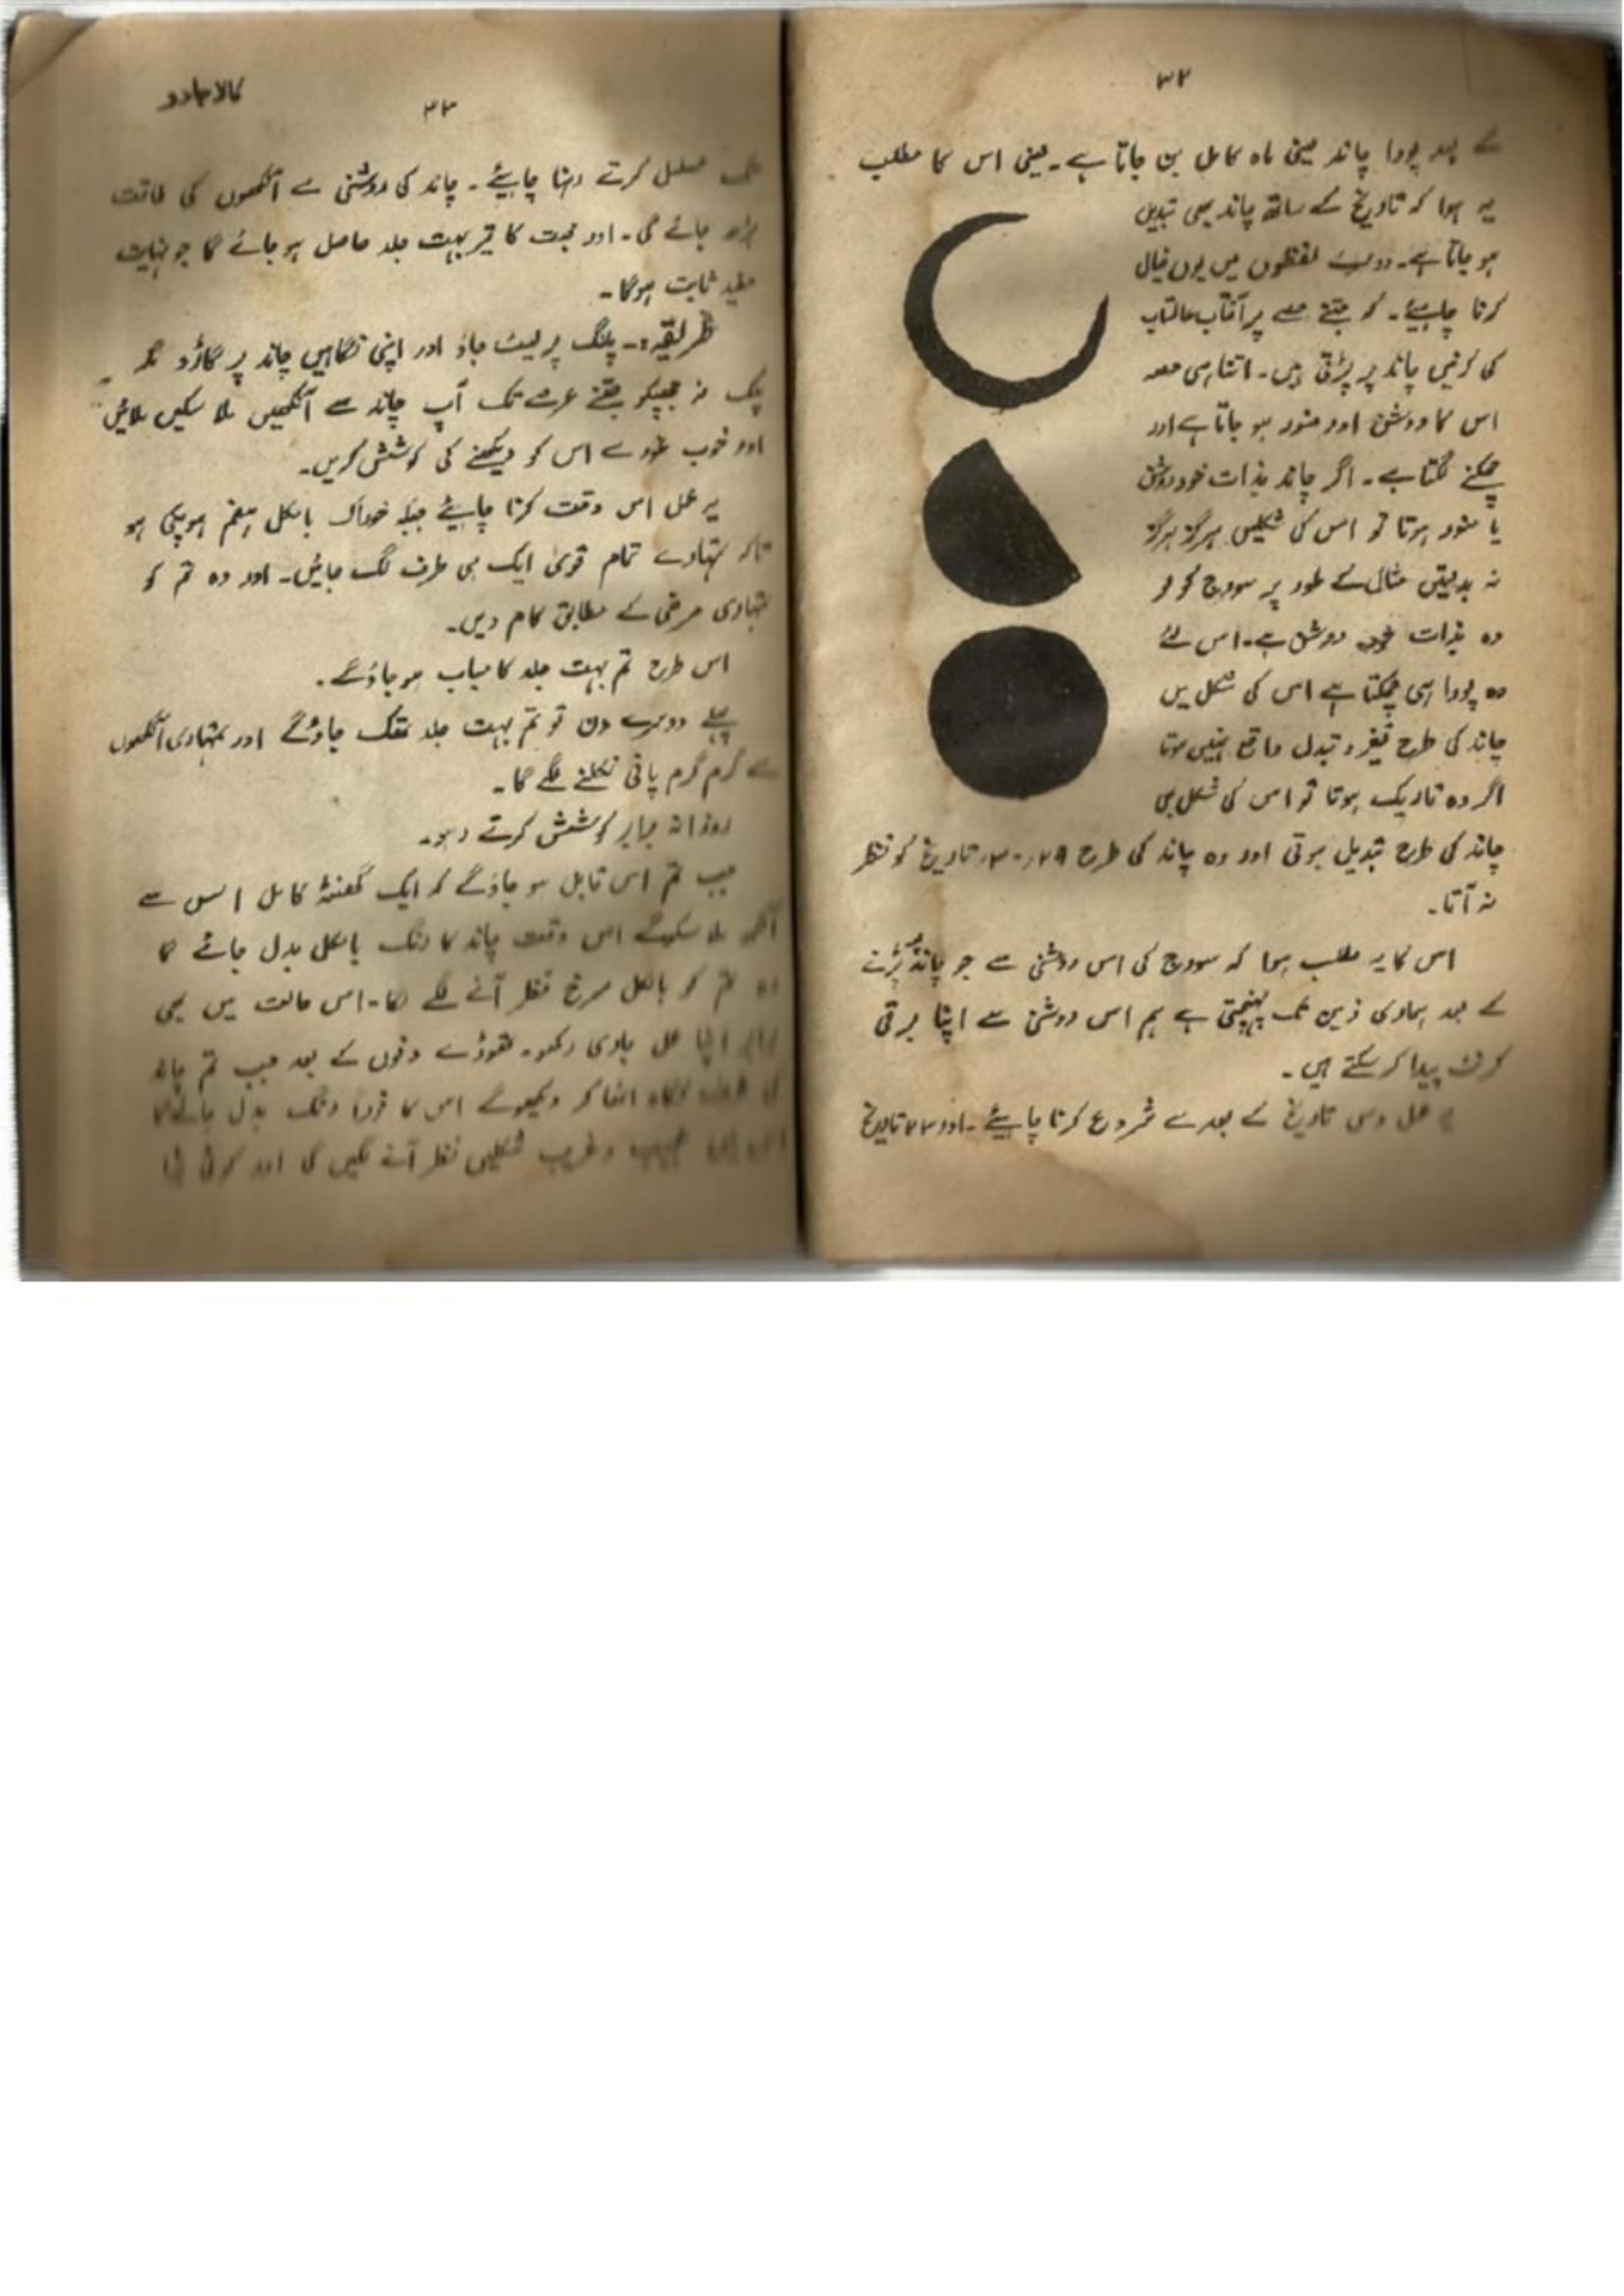 ۳۲
کے بعد پورا چاند یعنی ماہ کامل بن جاتا ہے۔ یعنی اس کا مطلب
یہ ہوا کہ تاریخ کے ساتھ چاند بھی تبدیل
ہو جاتا ہے۔ دوسرے لفظوں میں یوں خیال
کرنا چاہیئے۔ کہ جتنے حصے پر آفتاب عالمتاب
کی کرنیں چاند پر پڑتی ہیں۔ اتنا ہی حصہ
اس کا روشن اور منور ہو جاتا ہے اور
چمکنے لگتا ہے۔ اگر چاند بذات خود روشن
یا منور ہوتا تو اس کی شکلیں ہرگز ہرگز
نہ بدلتیں مثال کے طور پر سورج کو لو
وہ بذات خود روشن ہے۔ اس لئے
وہ پورا ہی چمکتا ہے اس کی شکل میں
چاند کی طرح تغیر و تبدل واقع نہیں ہوتا
اگر وہ تاریک ہوتا تو اس کی شکل بھی
چاند کی طرح تبدیل ہوتی اور وہ چاند کی طرح ۲۹، ۳۰ تاریخ کو نظر
نہ آتا۔
اس کا یہ مطلب ہوا کہ سورج کی اس روشنی سے جو چاند پر پڑنے
کے بعد ہماری زمین تک پہنچتی ہے ہم اس روشنی سے اپنا برقی
کرنٹ پیدا کر سکتے ہیں۔
یہ عمل دس تاریخ کے بعد سے شروع کرنا چاہیئے۔ اور تاریخ
کالا جادو
۳۳
تک مسلسل کرتے رہنا چاہیئے۔ چاند کی روشنی سے آنکھوں کی طاقت
بڑھ جائے گی۔ اور کا بہت جلد حاصل ہو جائے گا جو نہایت
مفید ثابت ہوگا۔
طریقہ:۔ پلنگ پر لیٹ جاؤ اور اپنی نگاہیں چاند پر گاڑ دو مگر
پلک نہ جھپکو جتنے عرصے تک آپ چاند سے آنکھیں ملا سکیں ملائیں
اور خوب غور سے اس کو دیکھنے کی کوشش کریں۔
یہ عمل اس وقت کرنا چاہیئے جبکہ خوراک بالکل ہضم ہو چکی ہو
تاکہ تمہارے تمام قویٰ ایک ہی طرف لگ جائیں۔ اور وہ تم کو
تمہاری مرضی کے مطابق کام دیں۔
اس طرح تم بہت جلد کامیاب ہو جاؤ گے۔
پہلے دوسرے دن تو تم بہت جلد تھک جاؤ گے اور تمہاری آنکھوں
سے گرم گرم پانی نکلنے لگے گا۔
روزانہ برابر کوشش کرتے رہو۔
جب تم اس قابل ہو جاؤ گے کہ ایک گھنٹہ کامل اس سے
آنکھ ملا سکو گے اس وقت چاند کا رنگ بالکل بدل جائے گا
وہ تم کو بالکل سرخ نظر آنے لگے گا۔ اس حالت میں بھی
برابر اپنا عمل جاری رکھو۔ تھوڑے دنوں کے بعد جب تم چاند
کی طرف نگاہ اٹھا کر دیکھو گے اس کا فوراً رنگ بدل جائے گا
اس میں عجیب و غریب شکلیں نظر آنے لگیں گی اور کوئی